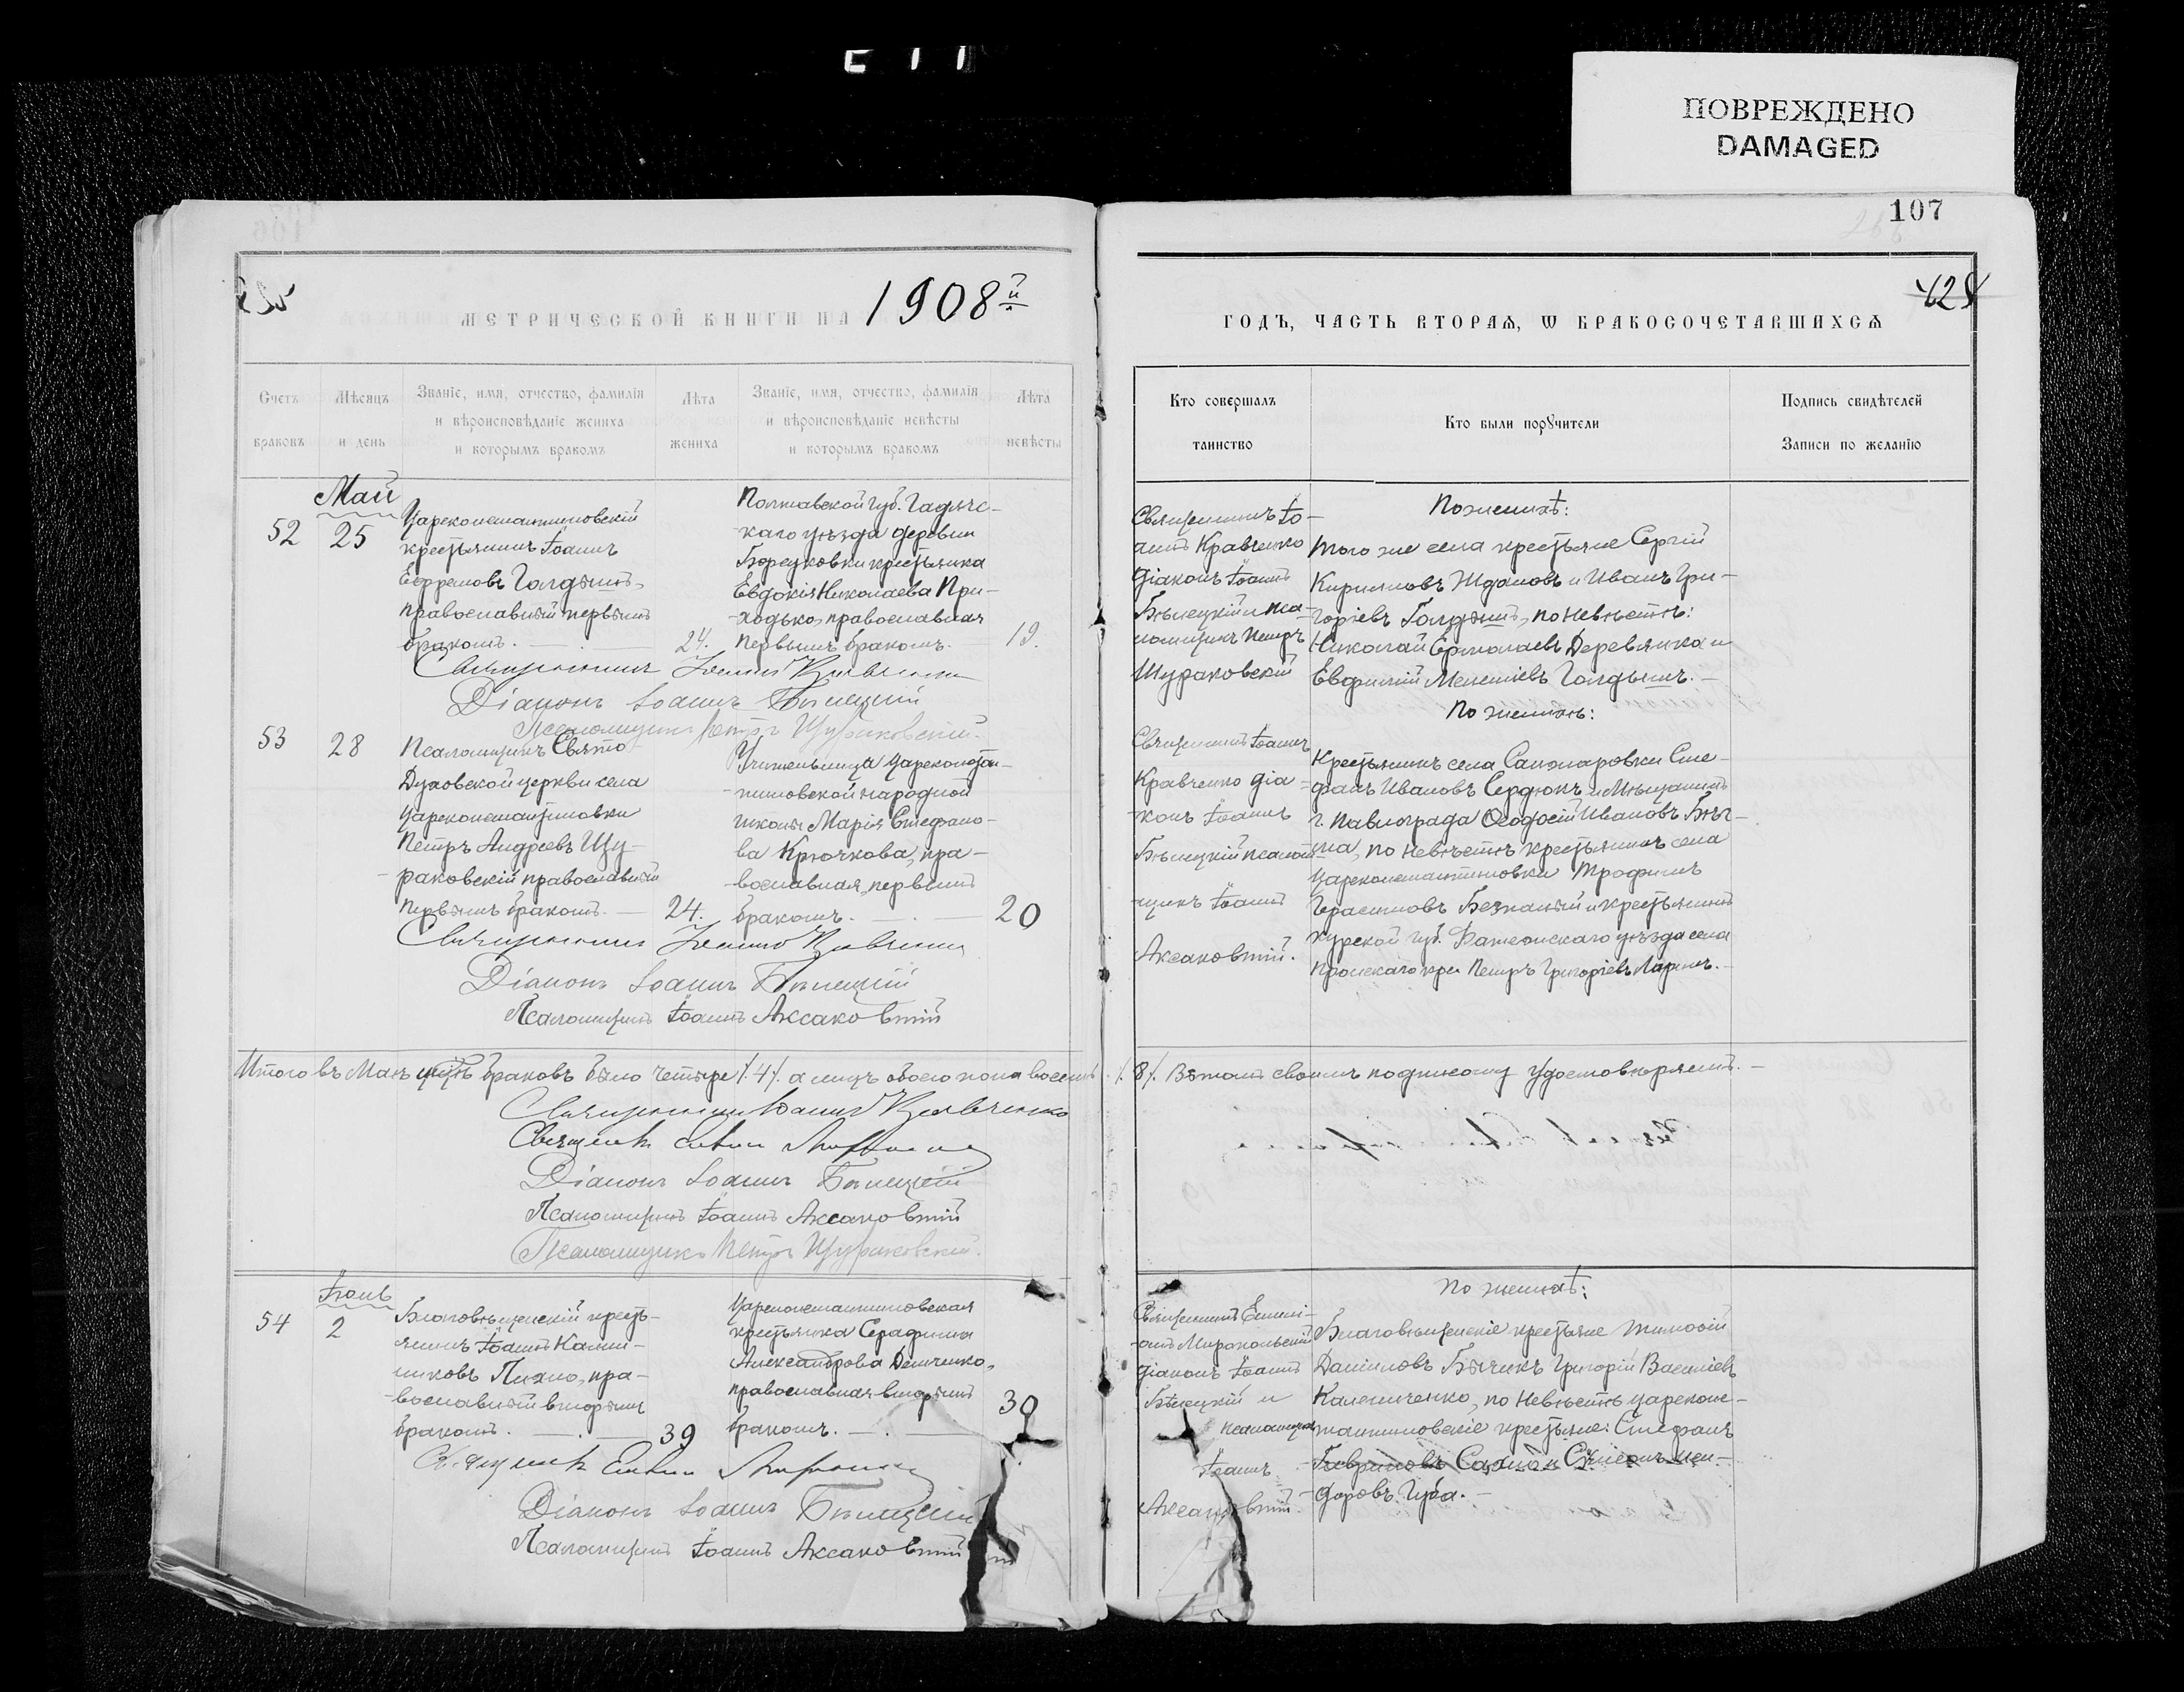 ПОВРЕЖДЕНО
DAMAGED
107
428
МЕТРИЧЕСКОЙ КНИГИ НА 1908й
ГОДЪ, ЧАСТЬ ВТОРАѦ, Ѡ БРАКОСОЧЕТАВШИХСѦ
Счетъ браковъ
Мѣсяцъ и день
Званіе, имя, отчество, фамилія
и вѣроисповѣданіе жениха
и которымъ бракомъ
Лѣта жениха
Званіе, имя, отчество, фамилія
и вѣроисповѣданіе невѣсты
и которымъ бракомъ
Лѣта невѣсты
Кто совершалъ
таинство
Кто были порꙋчители
Подпись свидѣтелей
Записи по желанію
Май
52
25
Цареконстантиновскій
крестьянинъ Іоаннъ
Ефремовъ Голдынъ,
православный первымъ
бракомъ.
24.
Полтавской губ. Гадячс-
каго уѣзда деревни
крестьянка
Евдокія Николаева При-
ходько, православная
первымъ бракомъ.
19.
Священникъ Іо-
аннъ Кравченко
діаконъ Іоаннъ
Бѣлецкій и пса-
ломщикъ Петръ
Щураковскій
По женихѣ:
того же села крестьяне Сергій
Кирилловъ Ждановъ и Иванъ Гри-
горіевъ Голдынъ, по невѣстѣ:
Николай Ермолаевъ Деревянка и
Евфимій Мелетіевъ Голдынъ.
Священникъ Іоаннъ Кравченко
Діаконъ Іоаннъ Бѣлецкій
Псаломщикъ Петръ Щураковскій.
53
28
Псаломщикъ Свято-
Духовской церкви села
Цареконстантиновки
Петръ Андреевъ Щу-
раковскій православный
первымъ бракомъ.
24.
Учительница Цареконстан-
тиновской народной
школы Марія Стефано-
ва Крючкова, пра-
вославная, первымъ
бракомъ.
20
Священникъ Іоаннъ
Кравченко діа-
конъ Іоаннъ
Бѣлецкій псалом-
щикъ Іоаннъ
Аксаковскій.
По женихѣ:
Крестьянинъ села Санжаровки Сте-
фанъ Ивановъ Сердюкъ и мѣщанинъ
г. Павлограда Ѳеодосій Ивановъ
по невѣстѣ крестьянинъ села
Цареконстантиновки Трофимъ
Герасимовъ и крестьянинъ
Курской губ. Фатежскаго уѣзда села
Петръ Григоріевъ Ларинъ.
Священникъ Іоаннъ Кравченко
Діаконъ Іоаннъ Бѣлецкій
Псаломщикъ Іоаннъ Аксаковскій
Итого въ Маѣ мѣсяцѣ браковъ было четыре /.4/. а лицъ обоего пола восемь /.8/. Въ томъ своимъ подписомъ удостовѣряемъ.
Священникъ Іоаннъ Кравченко
Священникъ
Діаконъ Іоаннъ Бѣлецкій
Псаломщикъ Іоаннъ Аксаковскій
Псаломщикъ Петръ Щураковскій.
Іюнь
54
2
Благовѣщенскій кресть-
янинъ Іоаннъ
Пихно, пра-
вославный вторымъ
бракомъ.
39
Цареконстантиновская
крестьянка Серафима
Александрова Демченко,
православная вторымъ
бракомъ.
30
Священникъ
діаконъ Іоаннъ
Бѣлецкій и
псаломщикъ
Іоаннъ
Аксаковскій
По женихѣ:
Благовѣщенскіе крестьяне Тимофій
Даніиловъ Григорій Василіевъ
по невѣстѣ Цареконс-
тантиновскіе крестьяне: Стефанъ
Гавриловъ
доровъ Губа.
Священникъ
Діаконъ Іоаннъ Бѣлецкій
Псаломщикъ Іоаннъ Аксаковскій